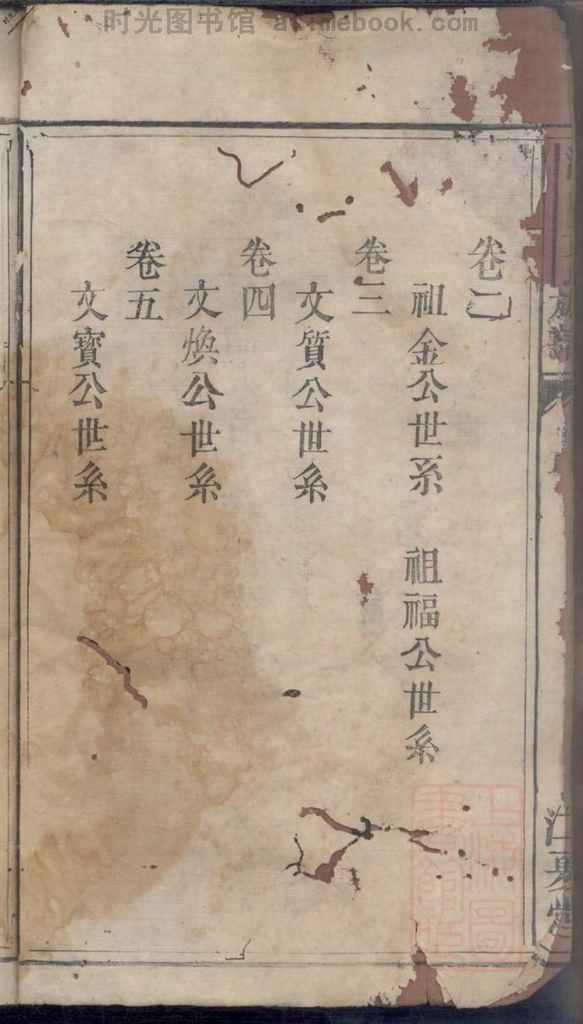 时光图书馆 asimebook.com
卷二
祖金公世系 祖福公世系
卷三
文質公世系
卷四
文煥公世系
卷五
文寶公世系
江夏堂